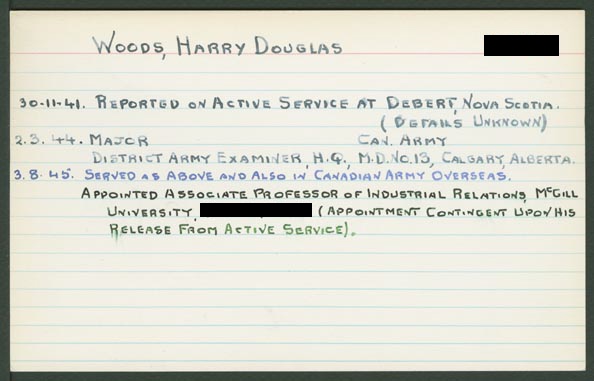 WOODS, HARRY DOUGLAS
30-11-41. REPORTED ON ACTIVE SERVICE AT DEBERT, NOVA SCOTIA.
(DETAILS UNKNOWN)
2.3.44. MAJOR CAN. ARMY
DISTRICT ARMY EXAMINER, H.Q., M.D. NO. 13, CALGARY, ALBERTA.
3.8.45. SERVED AS ABOVE AND ALSO IN CANADIAN ARMY OVERSEAS.
APPOINTED ASSOCIATE PROFESSOR OF INDUSTRIAL RELATIONS, MCGILL
UNIVERSITY, (APPOINTMENT CONTINGENT UPON HIS
RELEASE FROM ACTIVE SERVICE).